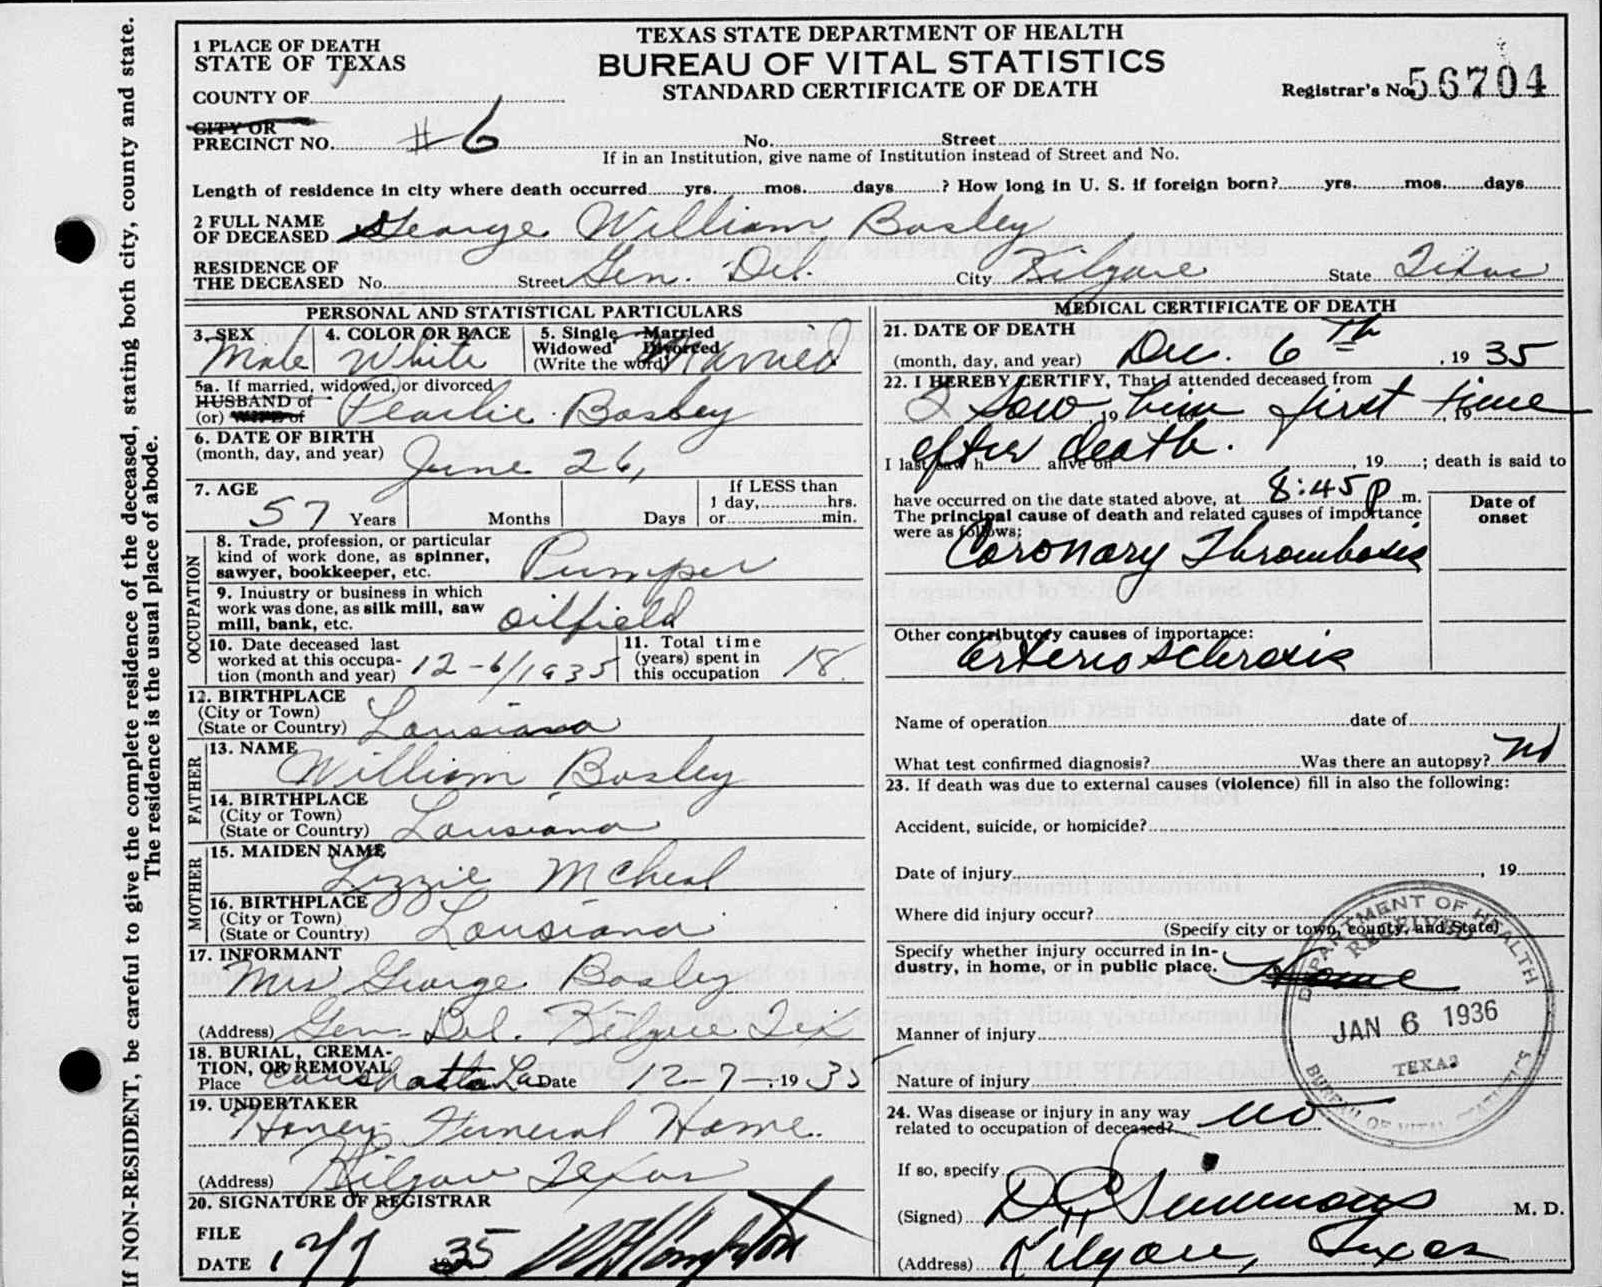 If NON-RESIDENT, be careful to give the complete residence of the deceased, stating both city, county and state.
The residence is the usual place of abode.
TEXAS STATE DEPARTMENT OF HEALTH
BUREAU OF VITAL STATISTICS
STANDARD CERTIFICATE OF DEATH
1 PLACE OF DEATH
STATE OF TEXAS
COUNTY OF
Registrar's No. 56704
CITY OR
PRECINCT NO. #6 No. Street
If in an Institution, give name of Institution instead of Street and No.
Length of residence in city where death occurred yrs. mos. days ? How long in U. S. if foreign born? yrs. mos. days
2 FULL NAME
OF DECEASED George William Bosley
RESIDENCE OF
THE DECEASED No. Street Gen. Del. City Kilgore State Texas
PERSONAL AND STATISTICAL PARTICULARS
3. SEX Male
4. COLOR OR RACE White
5. Single Married
Widowed Divorced
(Write the word) Married
5a. If married, widowed, or divorced
HUSBAND of
(or) WIFE of Pearlie Bosley
6. DATE OF BIRTH
(month, day, and year) June 26,
7. AGE
57 Years Months Days
If LESS than
1 day, hrs.
or min.
OCCUPATION
8. Trade, profession, or particular
kind of work done, as spinner,
sawyer, bookkeeper, etc. Pumper
9. Industry or business in which
work was done, as silk mill, saw
mill, bank, etc. Oilfield
10. Date deceased last
worked at this occupa-
tion (month and year) 12-6/1935
11. Total time
(years) spent in
this occupation 18
12. BIRTHPLACE
(City or Town)
(State or Country) Lousiana
FATHER
13. NAME William Bosley
14. BIRTHPLACE
(City or Town)
(State or Country) Lousiana
MOTHER
15. MAIDEN NAME
Lizzie
16. BIRTHPLACE
(City or Town)
(State or Country) Lousiana
17. INFORMANT
Mrs George Bosley
(Address) Gen Del. Kilgore Tex
18. BURIAL, CREMA-
TION, OR REMOVAL
Place Coushatta La Date 12-7- 1935
19. UNDERTAKER
Funeral Home
(Address) Kilgore Texas
20. SIGNATURE OF REGISTRAR
FILE
DATE 35
MEDICAL CERTIFICATE OF DEATH
21. DATE OF DEATH
(month, day, and year) Dec. 6th, 1935
22. I HEREBY CERTIFY, That I attended deceased from
I saw him first time
, 19 to , 19
after death.
I last saw h alive on , 19 ; death is said to
have occurred on the date stated above, at 8:45 P m.
The principal cause of death and related causes of importance
were as follows:
Date of
onset
Coronary Thrombosis
Other contributory causes of importance:
Arteriosclerosis
Name of operation date of
What test confirmed diagnosis? Was there an autopsy? No
23. If death was due to external causes (violence) fill in also the following:
Accident, suicide, or homicide?
Date of injury , 19
Where did injury occur?
(Specify city or town, county, and State)
Specify whether injury occurred in in-
dustry, in home, or in public place. Home
Manner of injury
Nature of injury
DEPARTMENT OF HEALTH
RECEIVED
JAN 6 1936
TEXAS
BUREAU OF VITAL STATISTICS
24. Was disease or injury in any way
related to occupation of deceased? no
If so, specify
(Signed) Simmons M. D.
(Address) Kilgore, Texas